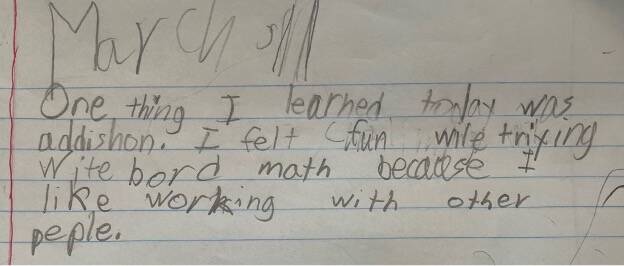 March
One thing I learned today was
addishon. I felt fun wile triying
Wite bord math because I
like working with other
peple.